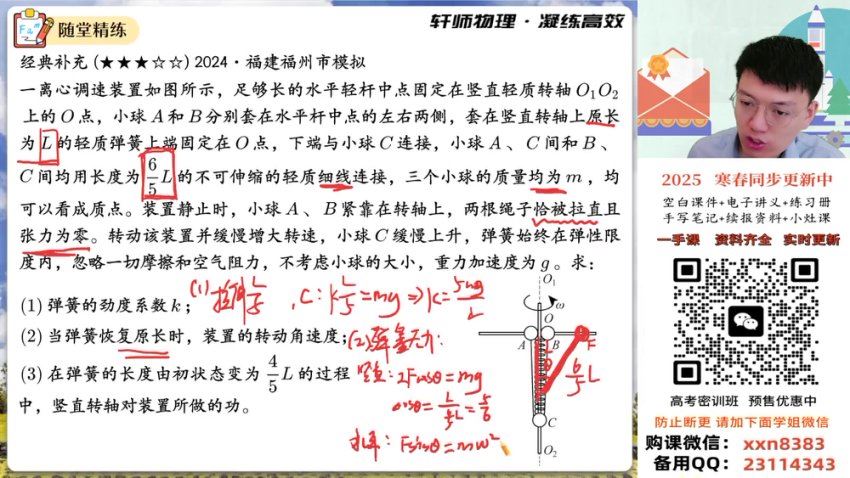 随堂精练
轩师物理·凝练高效
经典补充(★★★☆☆)2024·福建福州市模拟
一离心调速装置如图所示，足够长的水平轻杆中点固定在竖直轻质转轴O₁O₂
上的O点，小球A和B分别套在水平杆中点的左右两侧，套在竖直转轴上原长
为L的轻质弹簧上端固定在O点，下端与小球C连接，小球A、C间和B、
C间均用长度为6/5L的不可伸缩的轻质细线连接，三个小球的质量均为m，均
可以看成质点。装置静止时，小球A、B紧靠在转轴上，两根绳子恰被拉直且
张力为零。转动该装置并缓慢增大转速，小球C缓慢上升，弹簧始终在弹性限
度内，忽略一切摩擦和空气阻力，不考虑小球的大小，重力加速度为g。求：
(1)弹簧的劲度系数k；
(1) L/5 , C: k L/5 = mg ⇒ k = 5mg/L
(2)当弹簧恢复原长时，装置的转动角速度；
(2)弹簧无力:
(3)在弹簧的长度由初状态变为4/5L的过程
中，竖直转轴对装置所做的功。
竖直: 2Fcosθ=mg
cosθ = L/(6/5L) = 5/6
水平: Fsinθ=mω²
O₁
ω
O
A
B
F
6/5L
C
O₂
2025 寒春同步更新中
空白课件+电子讲义+练习册
手写笔记+续报资料+小灶课
一手课 资料齐全 实时更新
高考密训班 预售优惠中
防止断更 请加下面学姐微信
购课微信：xxn8383
备用QQ：23114343